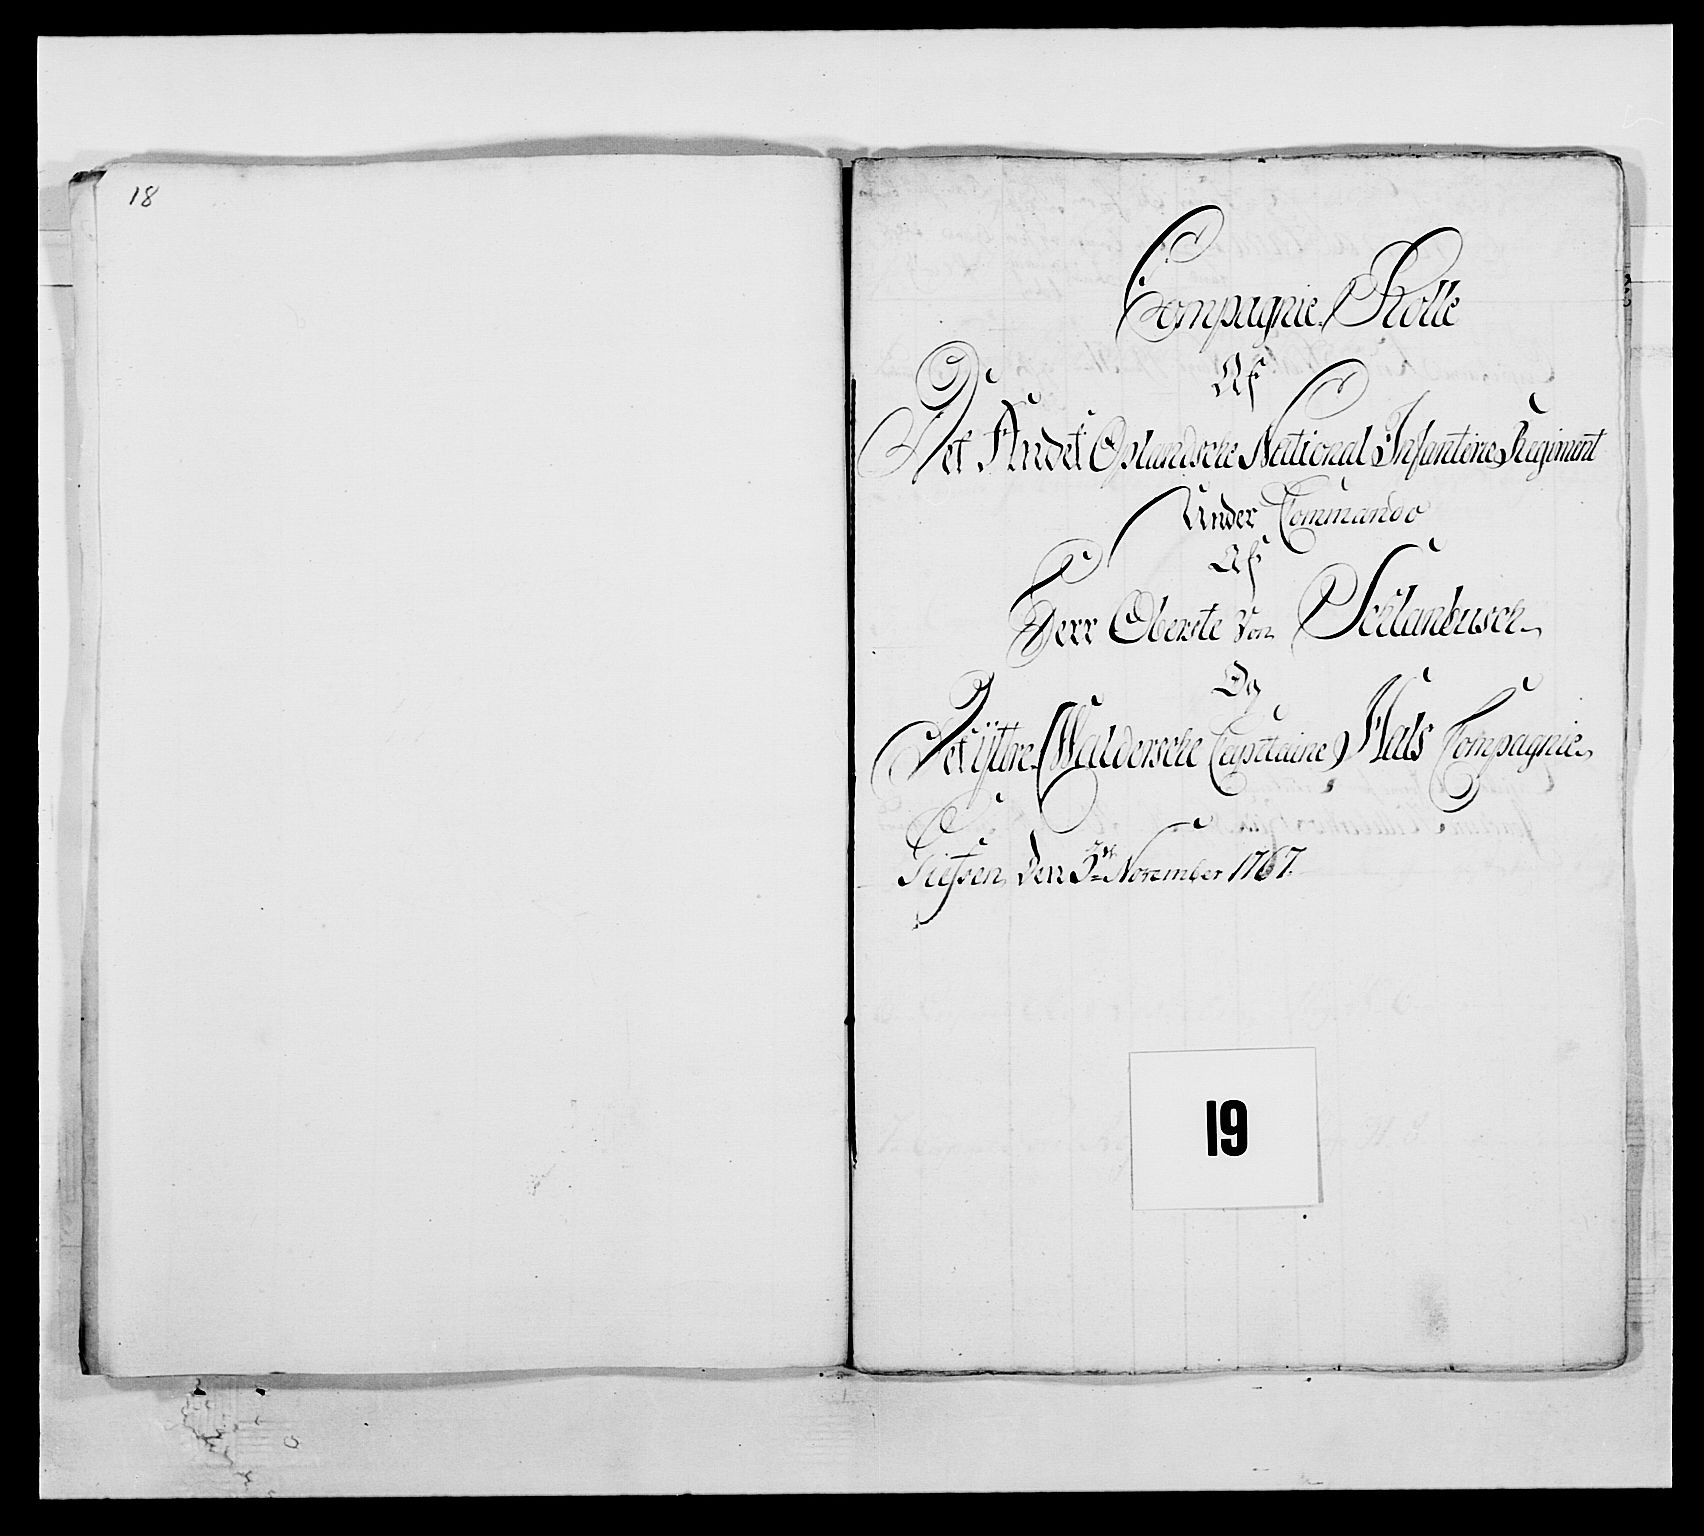 18
Compagnie Rolle
Af
Det Andet Oplandsche National Infanterie Regiment
Under Commando
Af
Herr Oberste Von Schlanbusch
Og
Det ÿttre Waldersche Capitaine Hals Compagnie
den November 1767.
19